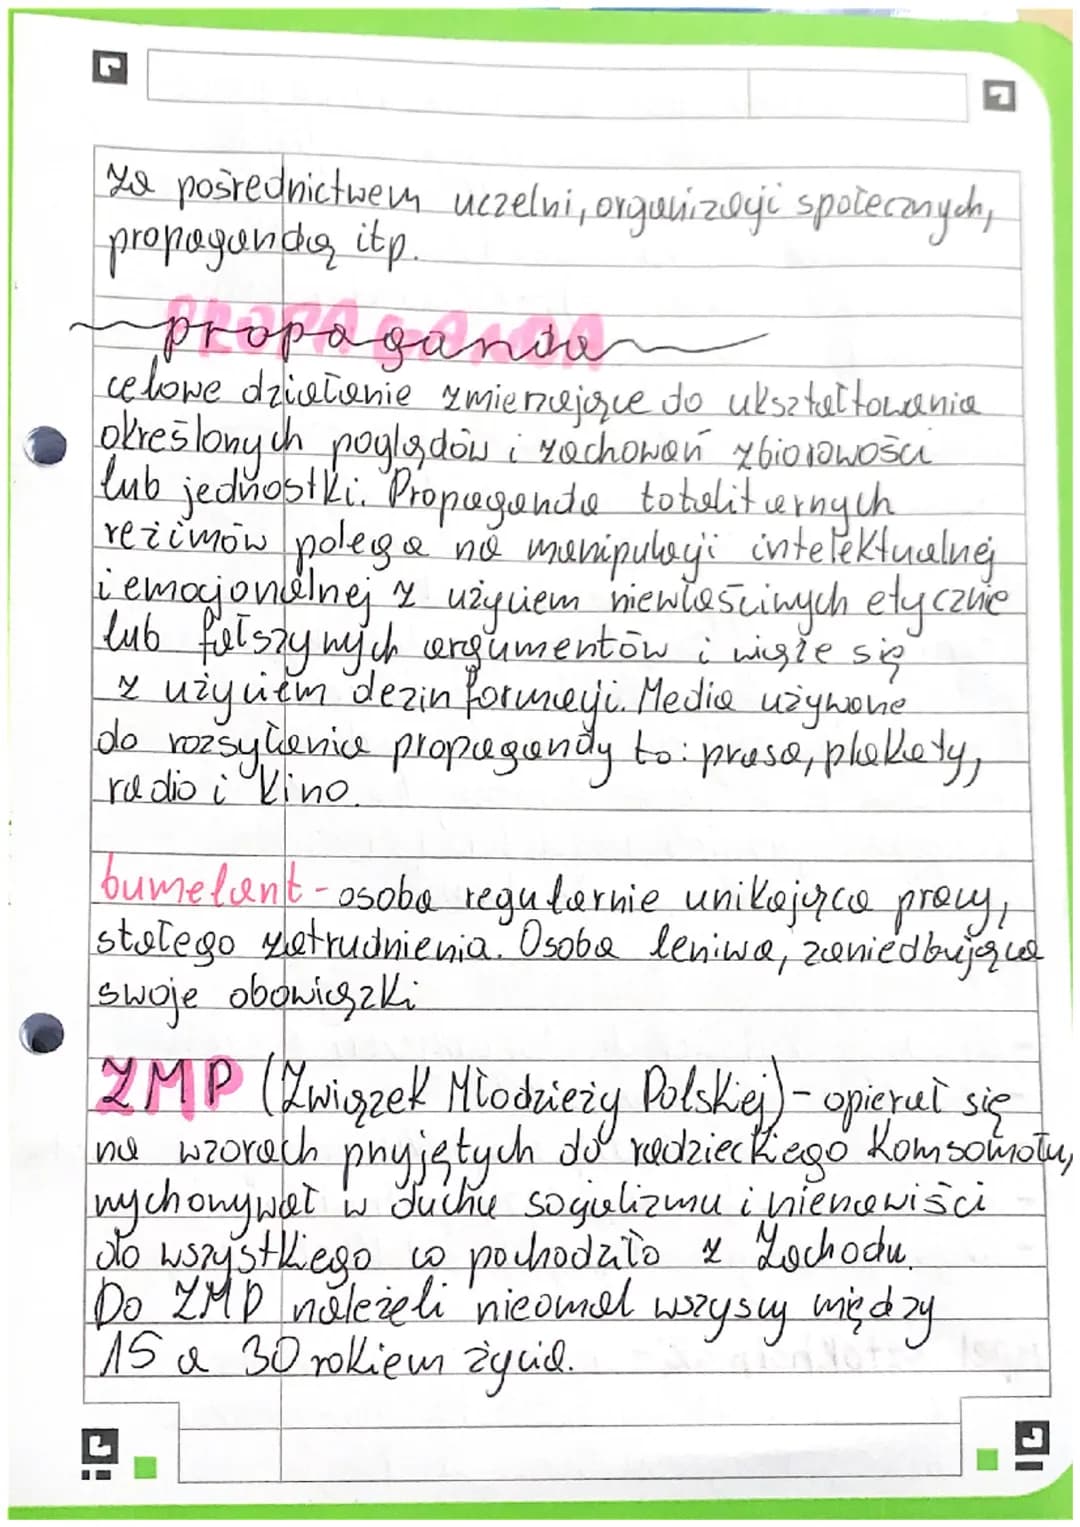 za pośrednictwem uczelni, organizacji społecznych,
propagandą itp.
PROPAGANDA
propaganda
celowe działanie zmierzające do ukształtowania
określonych poglądów i zachowań zbiorowości
lub jednostki. Propaganda totalitarnych
reżimów polega na manipulacji intelektualnej
i emocjonalnej z użyciem niewłaściwych etycznie
lub fałszywych argumentów i wiąże się
z użyciem dezinformacji. Media używane
do rozsyłania propagandy to: prasa, plakaty,
radio i kino.
bumelant - osoba regularnie unikająca pracy,
stałego zatrudnienia. Osoba leniwa, zaniedbująca
swoje obowiązki
ZMP (Związek Młodzieży Polskiej) - opierał się
na wzorach przyjętych do radzieckiego Komsomołu,
wychowywał w duchu socjalizmu i nienawiści
do wszystkiego co pochodziło z Zachodu.
Do ZMP należeli nieomal wszyscy między
15 a 30 rokiem życia.